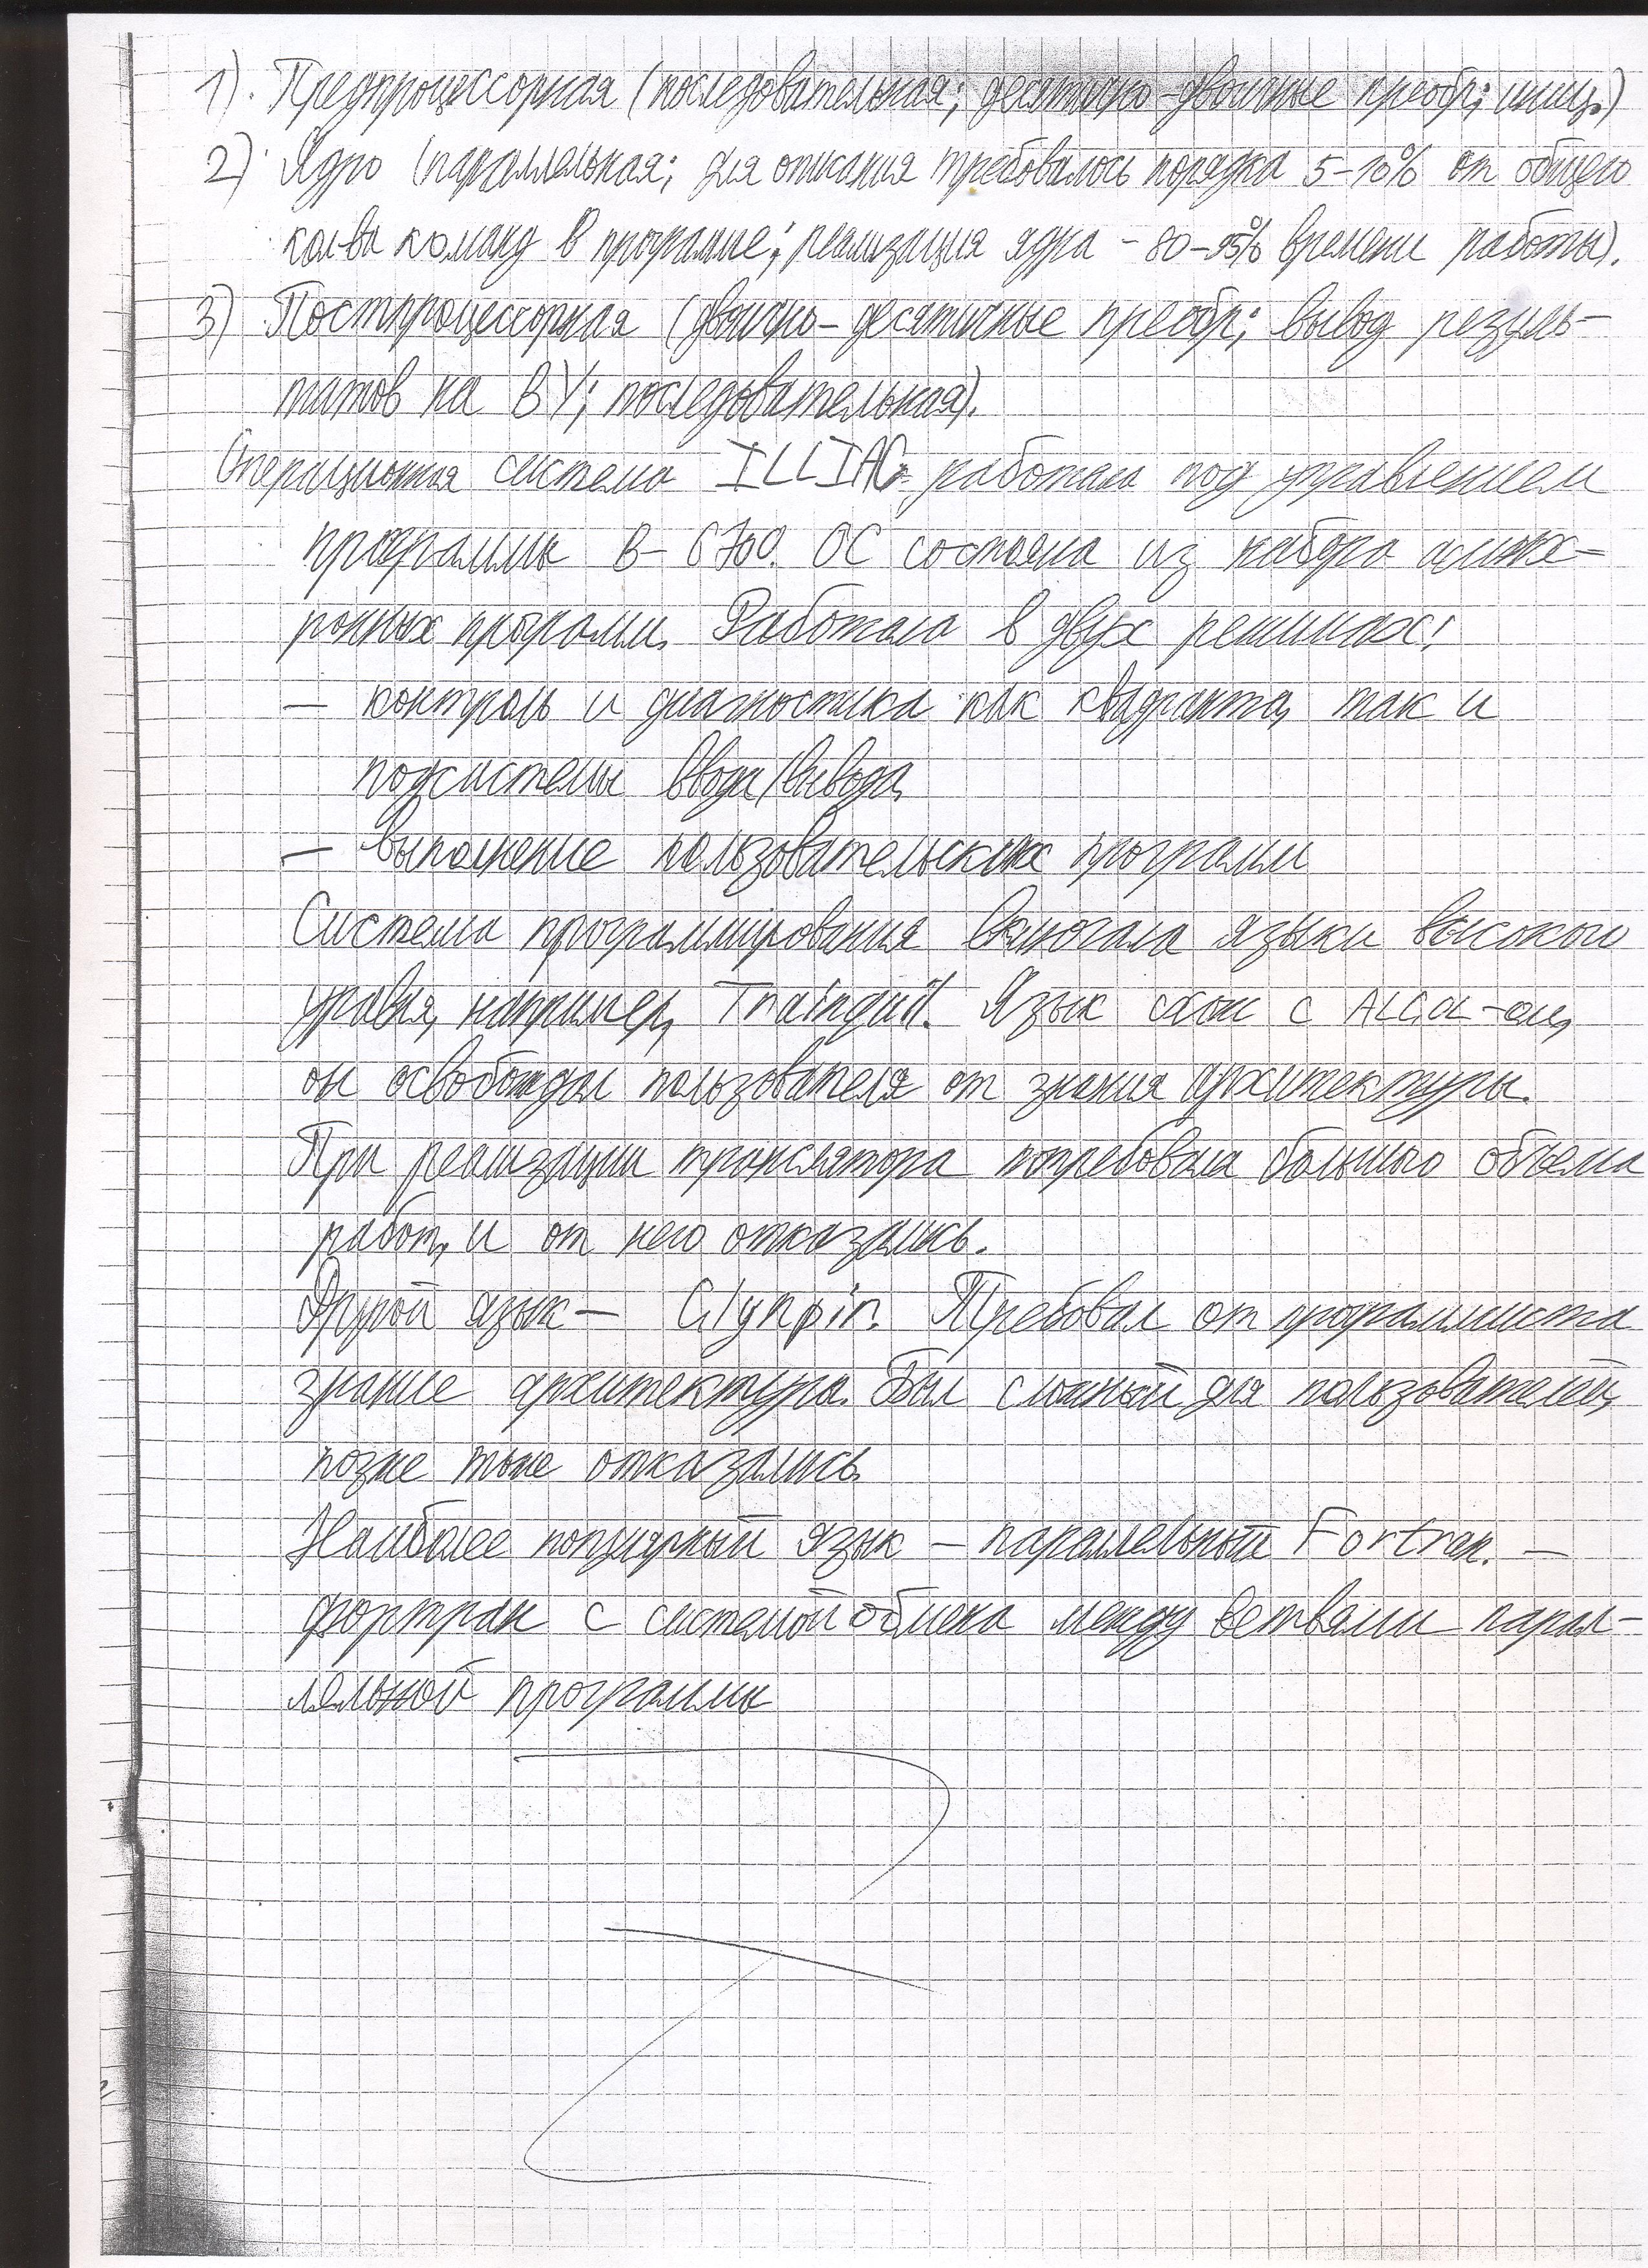 1). Предпроцессорная (последовательная; десятично-двоичные преобр; иниц.)
2) Ядро (параллельная; для описания требовалось порядка 5-10% от общего
кол-ва команд в программе; реализация ядра - 80-95% времени работы).
3) Постпроцессорная (двоично-десятичные преобр; вывод резуль-
татов на ВУ; последовательная).
Операционная система ILLIAC работала под управлением
программы B-6700. ОС состояла из набора асинх-
ронных программ. Работала в двух режимах:
— контроль и диагностика как квадранта, так и
подсистемы ввода/вывода,
— выполнение пользовательских программ
Система программирования включала языки высокого
уровня, например, Язык схож с ALGOL-ом,
он освобождал пользователя от знания архитектуры.
При реализации транслятора потребовал большого объема
работ, и от него отказались.
Другой язык — Glynpir. Требовал от программиста
знание архитектуры. Был сложный для пользователей,
позже тоже отказались.
Наиболее популярный язык — параллельный Fortran. —
фортран с системой обмена между ветвями парал-
лельной программы